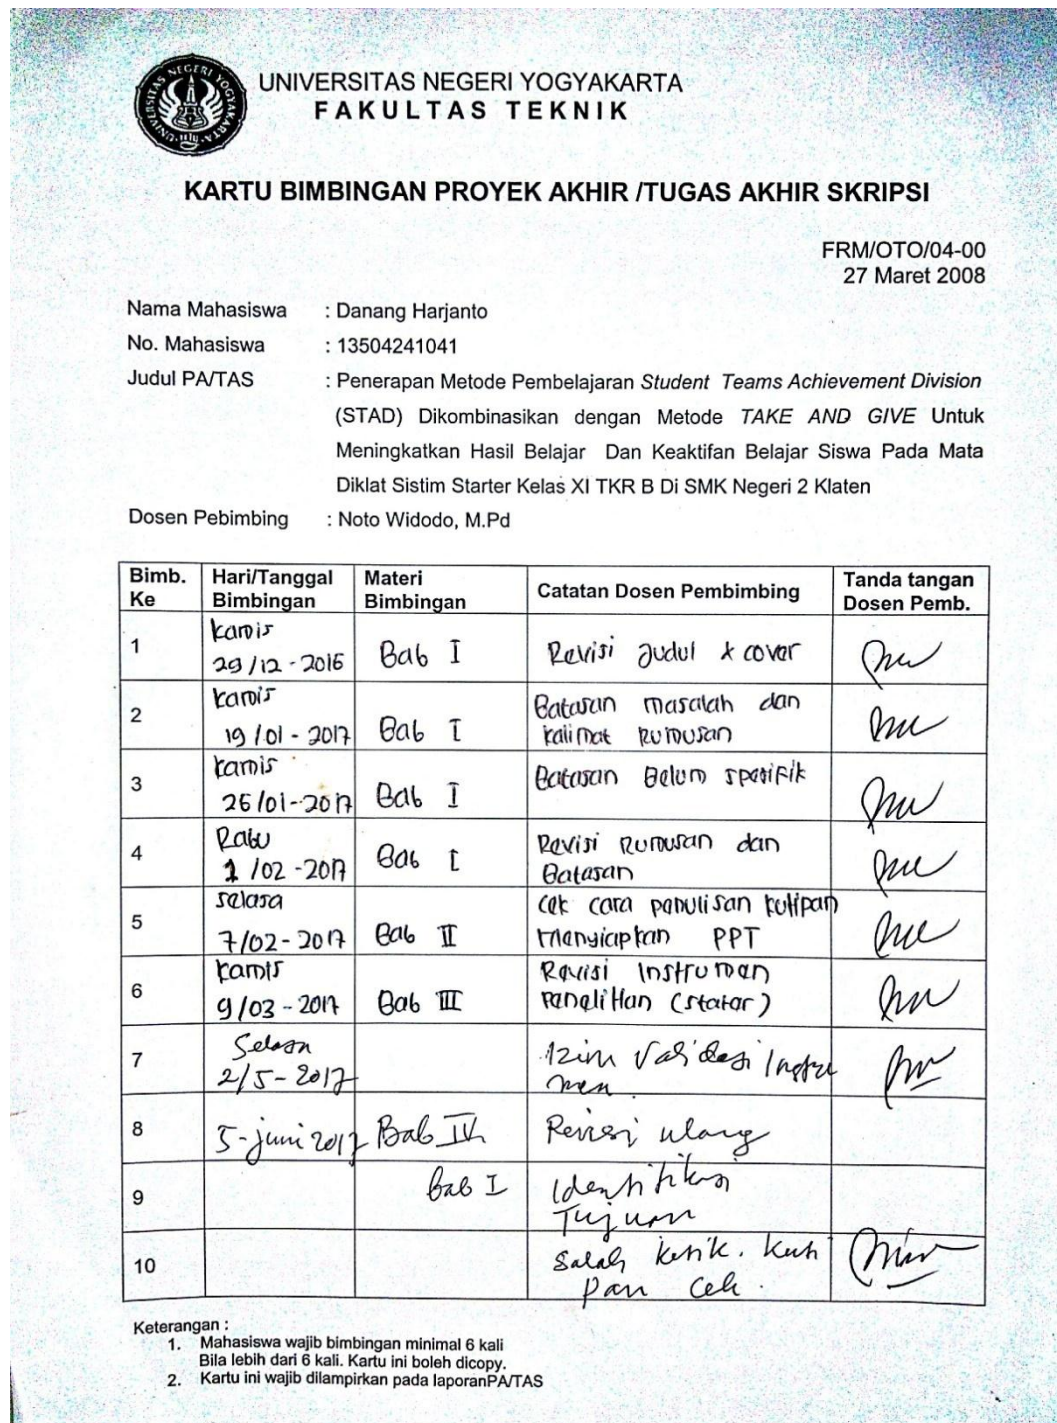 UNIVERSITAS NEGERI YOGYAKARTA
UNIVERSITAS NEGERI YOGYAKARTA
FAKULTAS TEKNIK
KARTU BIMBINGAN PROYEK AKHIR /TUGAS AKHIR SKRIPSI
FRM/OTO/04-00
27 Maret 2008
Nama Mahasiswa : Danang Harjanto
No. Mahasiswa : 13504241041
Judul PA/TAS : Penerapan Metode Pembelajaran Student Teams Achievement Division
(STAD) Dikombinasikan dengan Metode TAKE AND GIVE Untuk
Meningkatkan Hasil Belajar Dan Keaktifan Belajar Siswa Pada Mata
Diklat Sistim Starter Kelas XI TKR B Di SMK Negeri 2 Klaten
Dosen Pebimbing : Noto Widodo, M.Pd
Bimb. Ke Hari/Tanggal Bimbingan Materi Bimbingan Catatan Dosen Pembimbing Tanda tangan Dosen Pemb.
1 Kamis 29/12-2016 Bab I Revisi Judul & cover
2 Kamis 19/01-2017 Bab I Batasan masalah dan kalimat Rumusan
3 Kamis 26/01-2017 Bab I Batasan Belum spesifik
4 Rabu 1/02-2017 Bab I Revisi Rumusan dan Batasan
5 Selasa 7/02-2017 Bab II cek cara penulisan kutipan menyiapkan PPT
6 Kamis 9/03-2017 Bab III Revisi Instrumen Penelitian (stater)
7 Selasa 2/5-2017 Izin Validasi Instrumen
8 5-juni 2017 Bab IV Revisi ulang
9 Bab I Identifikasi Tujuan
10 Salah ketik. Kutipan Cek.
Keterangan :
1. Mahasiswa wajib bimbingan minimal 6 kali
Bila lebih dari 6 kali. Kartu ini boleh dicopy.
2. Kartu ini wajib dilampirkan pada laporanPA/TAS